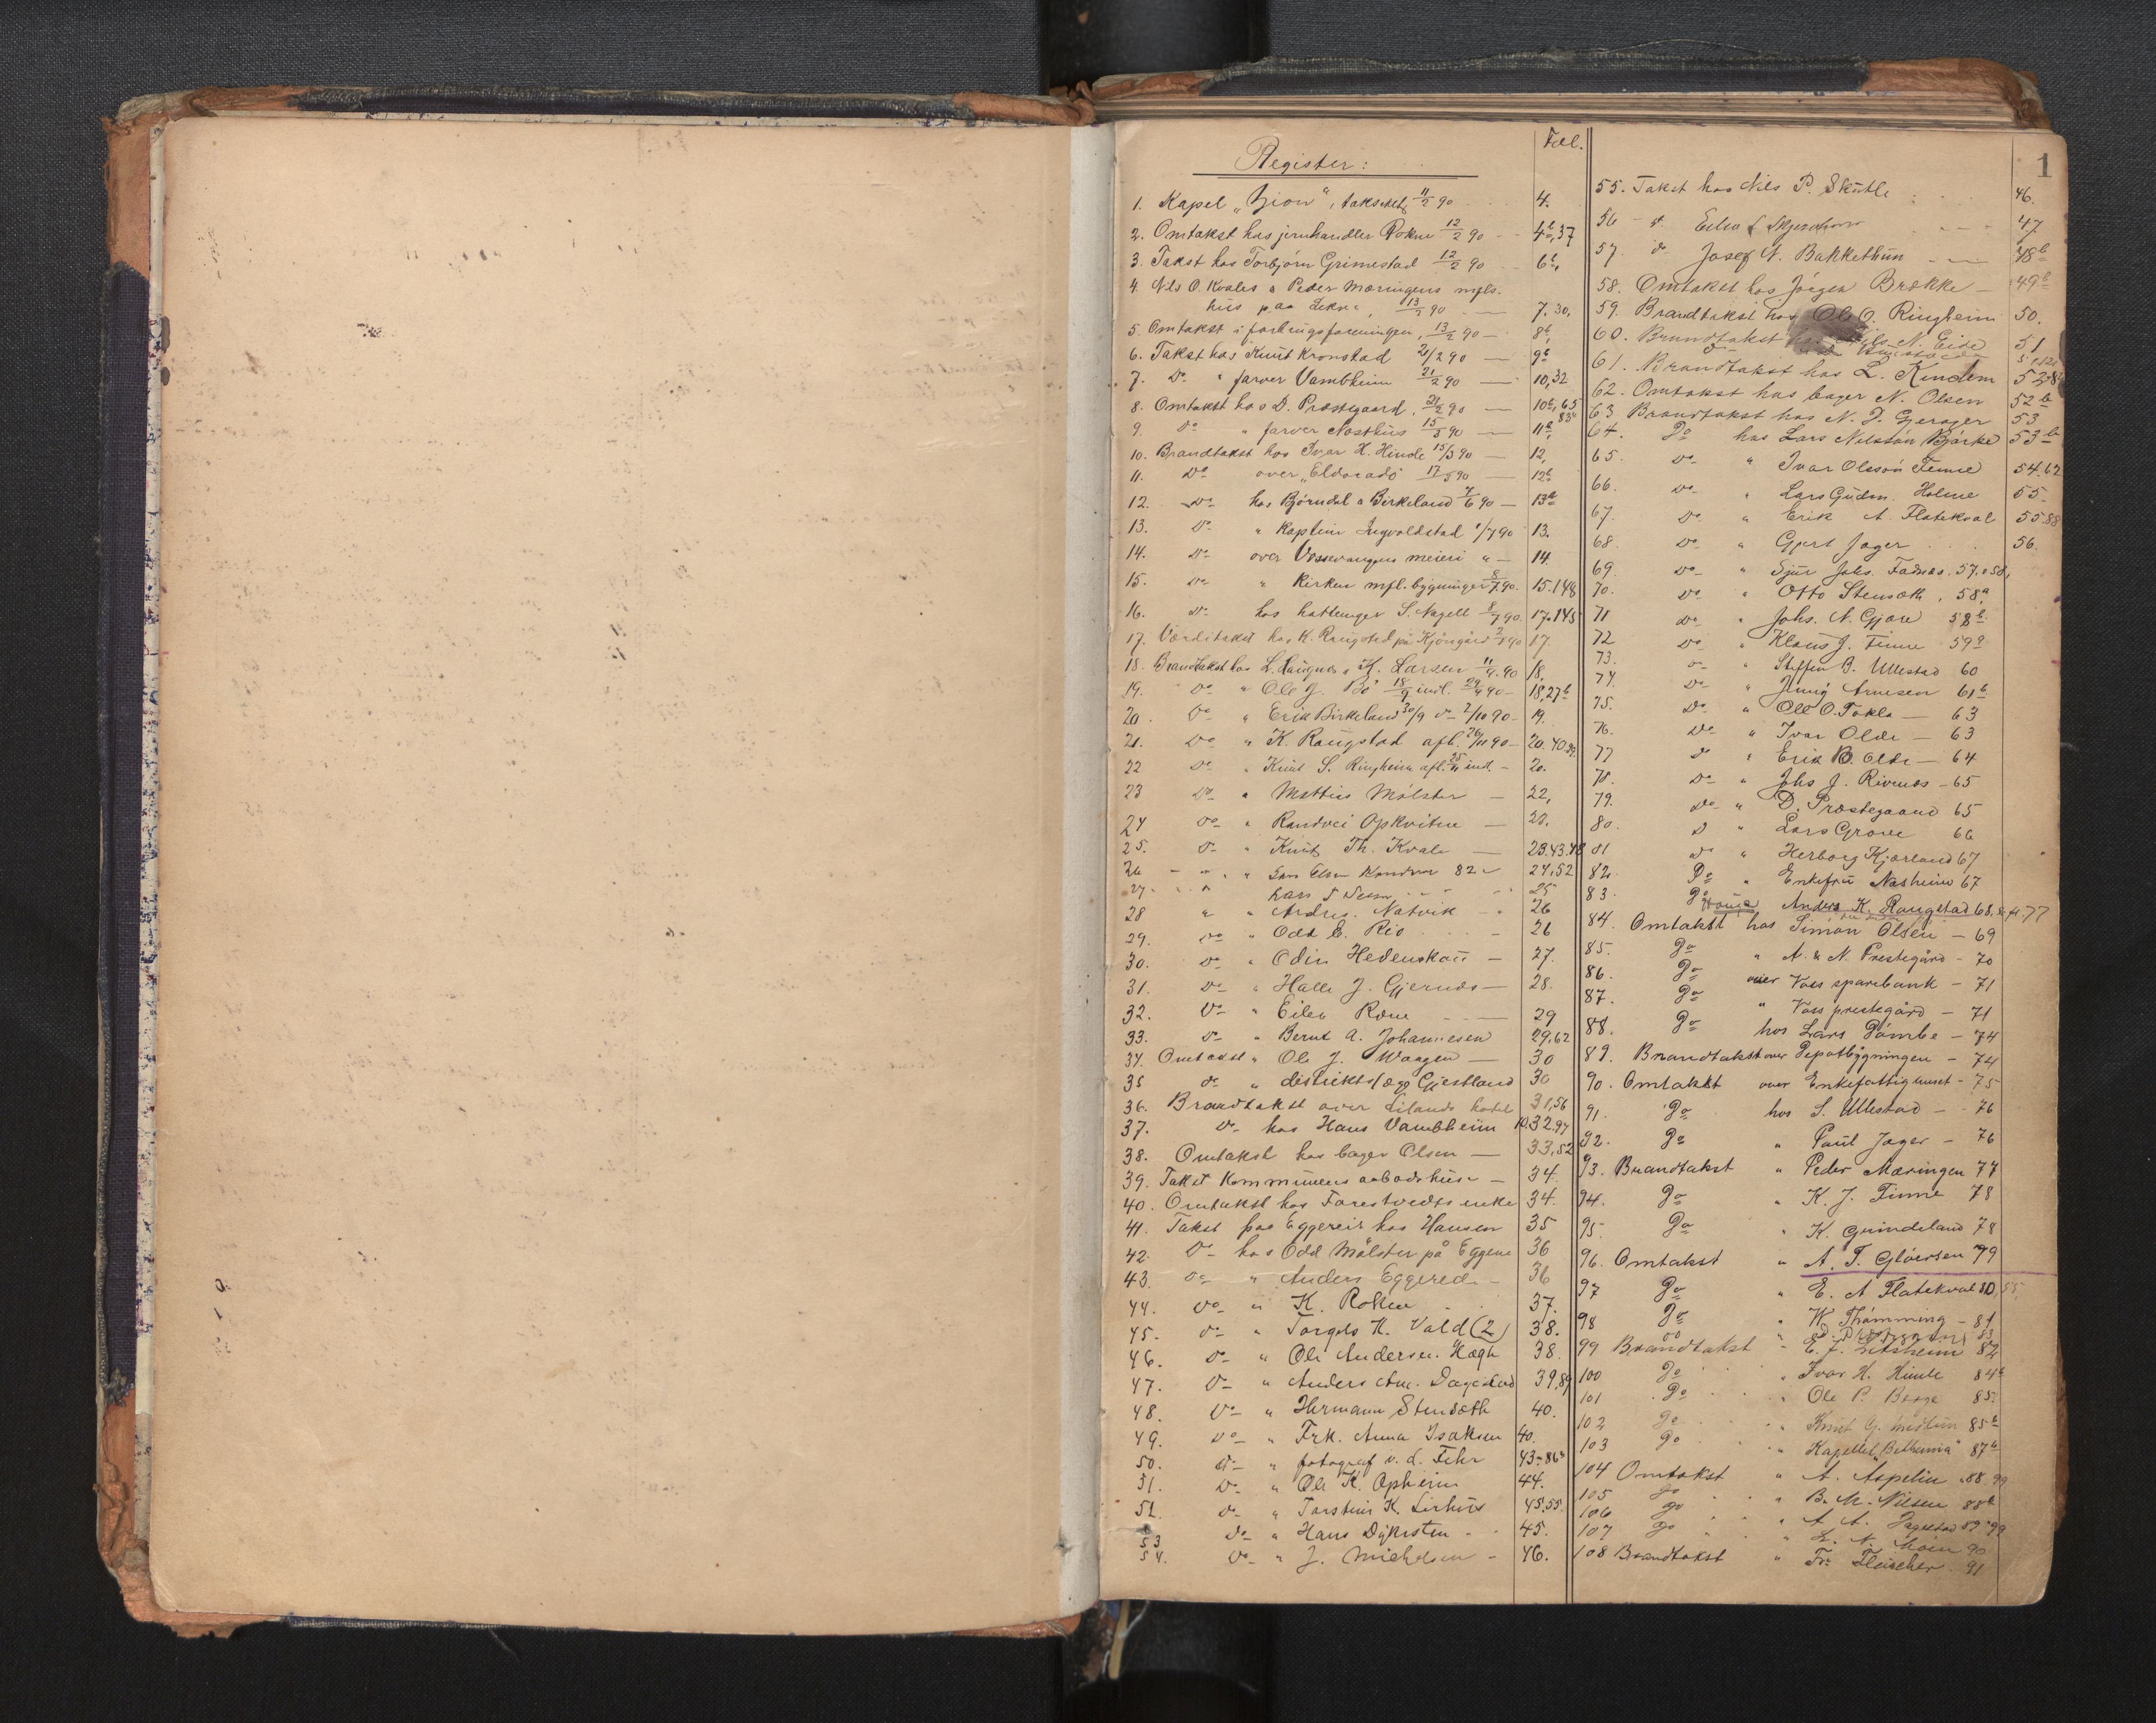 1
Register:
Fol.
1. Kapel „Zion“, taksert 11/2 90 4.
2. Omtakst hos jernhandler Rokne 12/2 90 - 4b, 37
3. Takst hos Torbjørn Grimestad 12/2 90 6b,
4. Nils O. Kvales a Peder Mæringens mfls.
hus paa Lekve, 13/2 90 - 7. 30,
5. Omtakst i forbrugsforeningen, 13/2 90 - 8b,
6. Takst hos Knut Kronstad 21/2 90 - 9b
7. Do " farver Vambheim 21/2 90 - 10, 32
8. Omtakst hos D. Præstegaard, 21/2 90 - 10b, 65 83b
9. do " farver Nesthus 15/3 90 - 11b,
10. Brandtakst hos Ivar H. Hinde 15/3 90 - 12,
11. Do over „Eldorado“ 17/5 90 - 12b
12. Do hos Bjørndal a Birkeland 7/6 90 - 13a
13. Do " Kaptein Ingvoldstad 1/7 90 13.
14. Do over Vossevangens meieri " - 14.
15. Do " Kirken mfl. bygninger 8/7 90. 15. 148
16. Do hos hattemager S. Nagell 8/7 90. 17. 145
17. Værditakst hos K. Raugstad på Kjøngård 2/7 90 17.
18. Brandtakst hos L. Laugnes, K. Larsen 11/9. 90 18,
19. Do " Ole J. Bø 18/9 indl. 29/9 90 - 18, 27b
20. Do " Erik Birkeland 30/9 d- 2/10 90 - 19.
21. Do " K. Raugstad afl. 26/11 90 - 20. 40.
22 Do " Knut S. Ringheim afl. 25/11 indl. - 20.
23 Do " Mattias Mølster - 22,
24 Do " Randvei Opkvitne - 23.
25. D- " Knut Th. Kvale - 23. 43. 48
26 - " " Lars Elsen 82 - 24, 52
27 " " Lars 25
28 " " Andreas Natvik - 26
29. Do " Odd E. Rio 26
30. Do " Odin Hedenskou - 27.
31. Do " Halle J. Gjernæs - 28.
32. Do " Eilev Rene - 29
33. Do " Bernt A. Johannesen 29, 62
34. Omtakst " Ole J. Waagen - 30
35 do " distriktslæge Gjestland 30
36. Brandtakst over Lilands hotel 31, 56
37. Do hos Hans Vambheim 10. 32. 97
38. Omtakst hos bager Olsen - 33, 52
39. Takst Kommunens aabodshuse - 34.
40. Omtakst hos Farestvedts enke 34.
41. Takst paa Eggereid hos Hansen 35
42. Do hos Odd Mølster på Eggene 36
43. Do " Anders Eggereid - 36
44. Do " K. Rokne 37.
45. Do " Torgels K. Vold (2) 38.
46. Do " Ole Andersen Hægh 38.
47. Do " Anders And. Dagestad 39, 89
48. Do " Hermann Stensæth 40.
49. Do " Frk. Anna Isaksen 40.
50. Do " fotograf v. d. Fehr 43 - 86b
51. Do " Ole K. Opheim 44.
52. Do " Torstein K. Lirhus 45, 55.
53 Do " Hans Dykesten 45.
54. Do " J. Michelsen - 46.
55. Takst hos Nils P. Skutle 46.
56 - d 47.
57. do Josef N. Bakkethun 48b
58. Omtakst hos Jørgen Brække - 49b
59. Brandtakst hos Ole O. Ringheim 50.
60. Brandtakst hos Nils N. Eide 51
61. Brandtakst hos L. Kindem 52
62. Omtakst hos bager N. Olsen 52b
63 Brandtakst hos N. J. Gjerager 53
64. Do hos Lars Nilssøn Bjørke 53b
65. Do " Ivar Olssøn Finne 54. 62
66. Do " Lars Gudm. Holme 55.
67. Do " Erik A. Flatekval 55. 88
68. Do " Gjert Jager 56.
69. Do " Sjur Johs. Fadnes 57. a 58,
70. Do " Otto Stensæth, 58a
71 Do " Johs. N. Gjøre 58b
72 Do " Klaus J. Finne 59a
73. D- " Steffen B. Ullestad 60
74. Do " Arnesen 61b
75. Do " Ole O. Takla - 63
76. Do " Ivar Olde - 63
77 D " Erik B. Olde - 64
78. Do " Johs J. Rivenæs - 65
79. Do " D. Præstegaard 65
80. D " Lars Grove 66
81 Do " Herborg Kjørland 67
82. Do " Enkefru Nasheim 67
83. Do Anders K. Raugstad 68, 77
84. Omtakst hos Simon Olsen - 69
85. Do " A. & N. Prestegård - 70
86. Do over Voss sparebank - 71
87. Do " Voss prestegård - 71
88. Do hos Lars Dømbe - 74
89. Brandtakst over Depotbygningen - 74
90. Omtakst over Enkefattighuset - 75
91. Do hos S. Ullestad - 76
92. Do " Paul Jager - 76
93. Brandtakst " Peder Mæringen 77
94. Do " K. J. Finne 78
95. Do " K. Grindeland 78
96. Omtakst " A. T. Gløersen 79
97 Do " E. A Flatekval 80, 55
98 Do " W. Thømming - 81
99 Brandtakst " E. J. Litsheim 82
100 Do " Ivar H. Himle 84b
101 Do " Ole P. Berge 85.
102 Do " Knut G. Mestun 85b
103 Do " Kapellet „Bethania“ 87b
104 Omtakst " A. Aspelin 88, 99
105 Do " B. M. Nilsen 88b
106 Do " A. A. Dagestad 89, 99
107 Do " L. N. Moen 90
108 Brandtakst " Fr. Fleischer 91